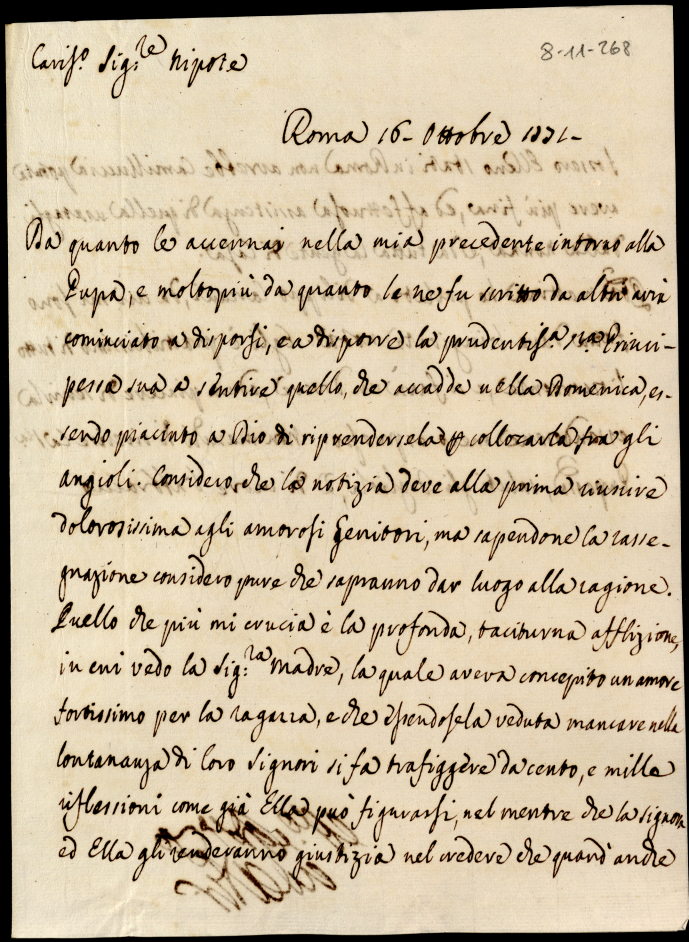 8-11-268
Cariss.o Sig.re Nipote
Roma 16- Ottobre 1831-
Da quanto le accennai nella mia precedente intorno alla
Pupa, e moltopiù da quanto le ne fu scritto da altri avrà
cominciato a disporsi, e a disporre la prudentiss.a Sra Princi-
pessa sua a sentire quello, che accadde nella Domenica, es-
sendo piaciuto a Dio di riprendersela p collocarla fra gli
angioli. Considero, che la notizia deve alla prima riuscire
dolorosissima agli amorosi Genitori, ma sapendone la rasse-
gnazione considero pure che sapranno dar luogo alla ragione.
Quello che più mi crucia è la profonda, taciturna afflizione,
in cui vedo la Sig.ra Madre, la quale aveva concepito un amore
fortissimo per la ragazza, e che essendosela veduta mancare nella
lontananza di loro Signori si fa trafiggere da cento, e mille
riflessioni come già Ella può figurarsi, nel mentre che la Signora
ed Ella gli renderanno giustizia nel credere che quand'anche